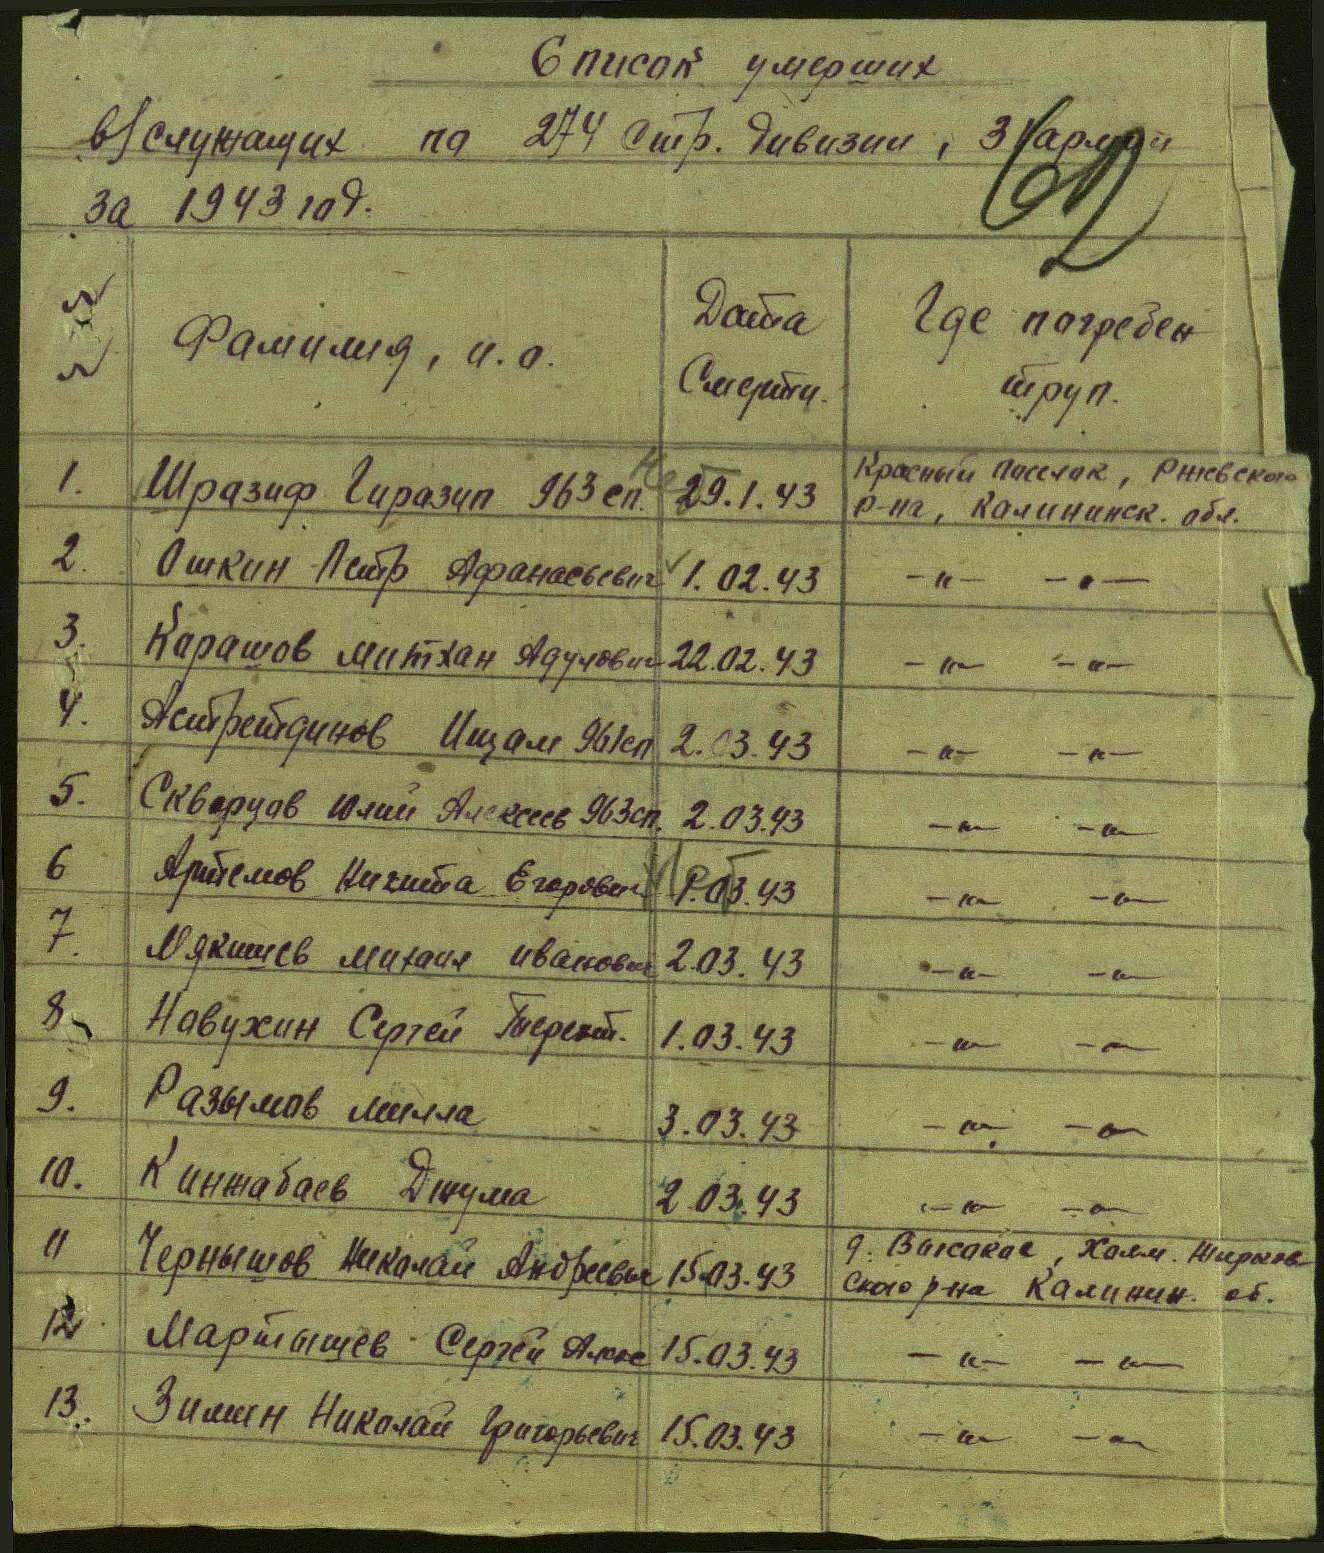 Список умерших
в/служащих по 274 стр. дивизии, 31 армии
за 1943 год.
Фамилия, и.о.
Дата
Смерти.
Где погребен
труп.
1. Шразиф Гиразип 963 сп. 29.1.43 Красный Поселок, Ржевского
р-на, Калининск. обл.
2. Ошкин Петр Афанасьевич 1.02.43 -„- -„-
3. Карашов митхан Адулович 22.02.43 -„- -„-
4. Астретдинов Ищам 961сп 2.03.43 -„- -„-
5. Скворцов Юлий Алексеев 963сп. 2.03.43 -„- -„-
6 Артемов Никита Егорович .03.43 -„- -„-
7. Мякишев михаил иванович 2.03.43 -„- -„-
8. Навухин Сергей Терент. 1.03.43 -„- -„-
9. Разымов милла 3.03.43 -„- -„-
10. Кинжабаев Джума 2.03.43 -„- -„-
11 Чернышов Николай Андреевич 15.03.43 д. Высокое, Холм. Жирков-
ского р-на Калинин. об.
12 Мартышев Сергей Алекс 15.03.43 -„- -„-
13. Зимин Николай Григорьевич 15.03.43 -„- -„-